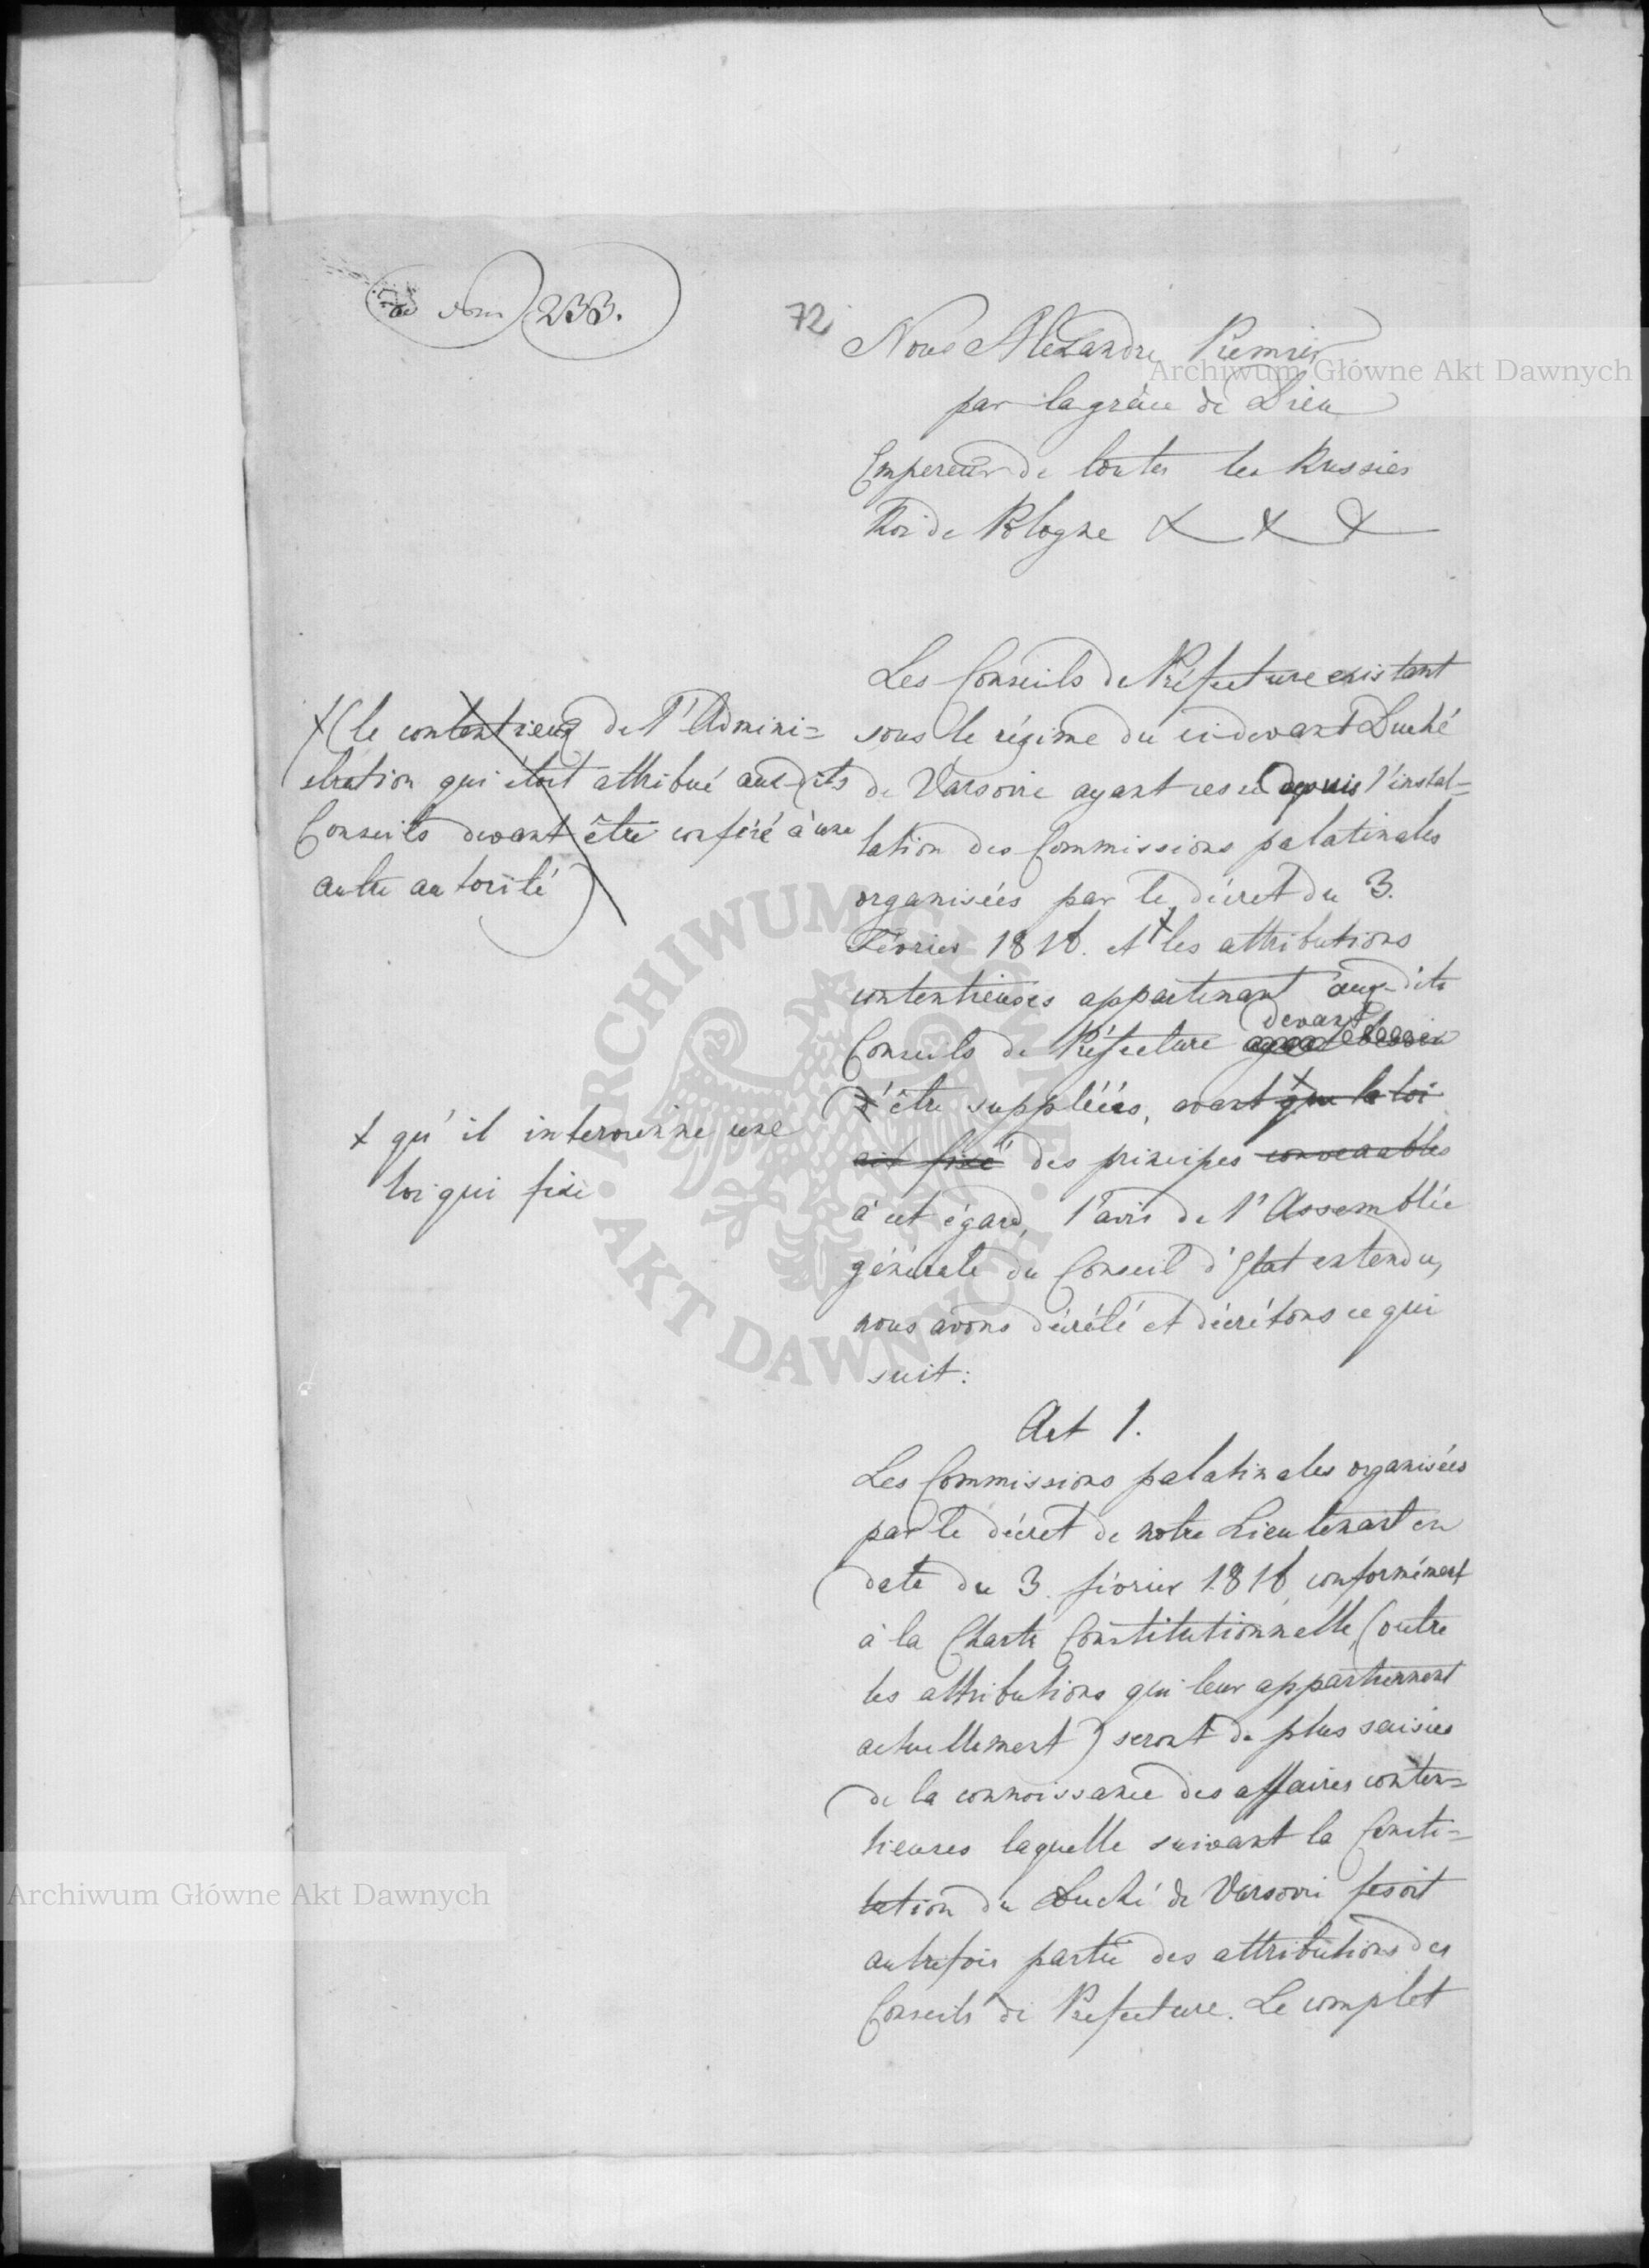 233.
72
Nous Alexandre Premier
par la grâce de Dieu
Empereur de toutes les Russies
Roi de Pologne & & &
Les Conseils de Préfecture existant
sous le régime du ci-devant Duché
de Varsovie ayant cessé depuis l'instal=
lation des Commissions palatinales
organisées par le décret du 3.
Février 1816. et + les attributions
contentieuses appartenant aux-dits
Conseils de Préfecture devant
d'être suppléées, avant + que la loi
ait fixé des principes convenables
à cet égard, l'avis de l'Assemblée
générale du Conseil d'Etat entendu,
nous avons décrété et décrétons ce qui
suit:
+ (le contentieux de l'Admini=
stration qui étoit attribué aux-dits
Conseils devant être conféré à une
autre autorité)
+ qu'il intervienne une
loi qui fixe
Art 1.
Les Commissions palatinales organisées
par le décret de notre Lieutenant en
date du 3. février 1816, conformément
à la Charte Constitutionnelle, (outre
les attributions qui leur appartiennent
actuellement) seront de plus saisies
de la connoissance des affaires conten=
tieuses laquelle suivant la Consti=
tution du Duché de Varsovie fesoit
autrefois partie des attributions des
Conseils de Prefecture. Le complet
Archiwum Główne Akt Dawnych
Archiwum Główne Akt Dawnych
ARCHIWUM GŁÓWNE
AKT DAWNYCH